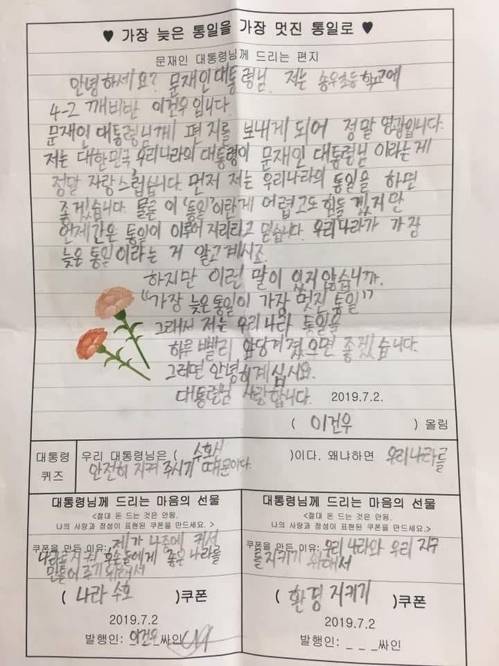 ♥ 가장 늦은 통일을 가장 멋진 통일로 ♥
문재인 대통령님께 드리는 편지
안녕하세요? 문재인대통령님. 저는 송우초등학교에
4-2 깨비반 이건우입니다
문재인 대통령님께 편지를 보내게 되어 정말 영광입니다.
저는 대한민국 우리나라의 대통령이 문재인 대통령님 이라는게
정말 자랑스럽습니다. 먼저 저는 우리나라의 통일을 하면
좋겠습니다. 물론 이 '통일'이란게 어렵고도 힘들 겠지만
언제간은 통일이 이루어 지리라고 믿습니다. 우리나라가 가장
늦은 통일이라는 거 알고계시죠.
하지만 이런 말이 있지 않습니까.
"가장 늦은 통일이 가장 멋진 통일"
그래서 저는 우리나라 통일을
하루 빨리 앞당겨졌으면 좋겠습니다.
그러면 안녕히계십시요.
대통령님 사랑합니다.
2019.7.2.
( 이건우 ) 올림
대통령 퀴즈
우리 대통령님은 ( 수호신 )이다. 왜냐하면 우리나라를
안전히 지켜 주시기 때문이다.
대통령님께 드리는 마음의 선물
<절대 돈 드는 것은 안됨.
나의 사랑과 정성이 표현된 쿠폰을 만드세요.>
쿠폰을 만든 이유: 제가 나중에 커서
후손들에게 좋은 나라를
만들어 주기 위해서
( 나라 수호 )쿠폰
2019.7.2
발행인: 이건우 싸인
대통령님께 드리는 마음의 선물
<절대 돈 드는 것은 안됨.
나의 사랑과 정성이 표현된 쿠폰을 만드세요.>
쿠폰을 만든 이유: 우리 나라와 우리 지구
를 지키기 위해서
( 환경 지키기 )쿠폰
2019.7.2
발행인: _ _ _싸인